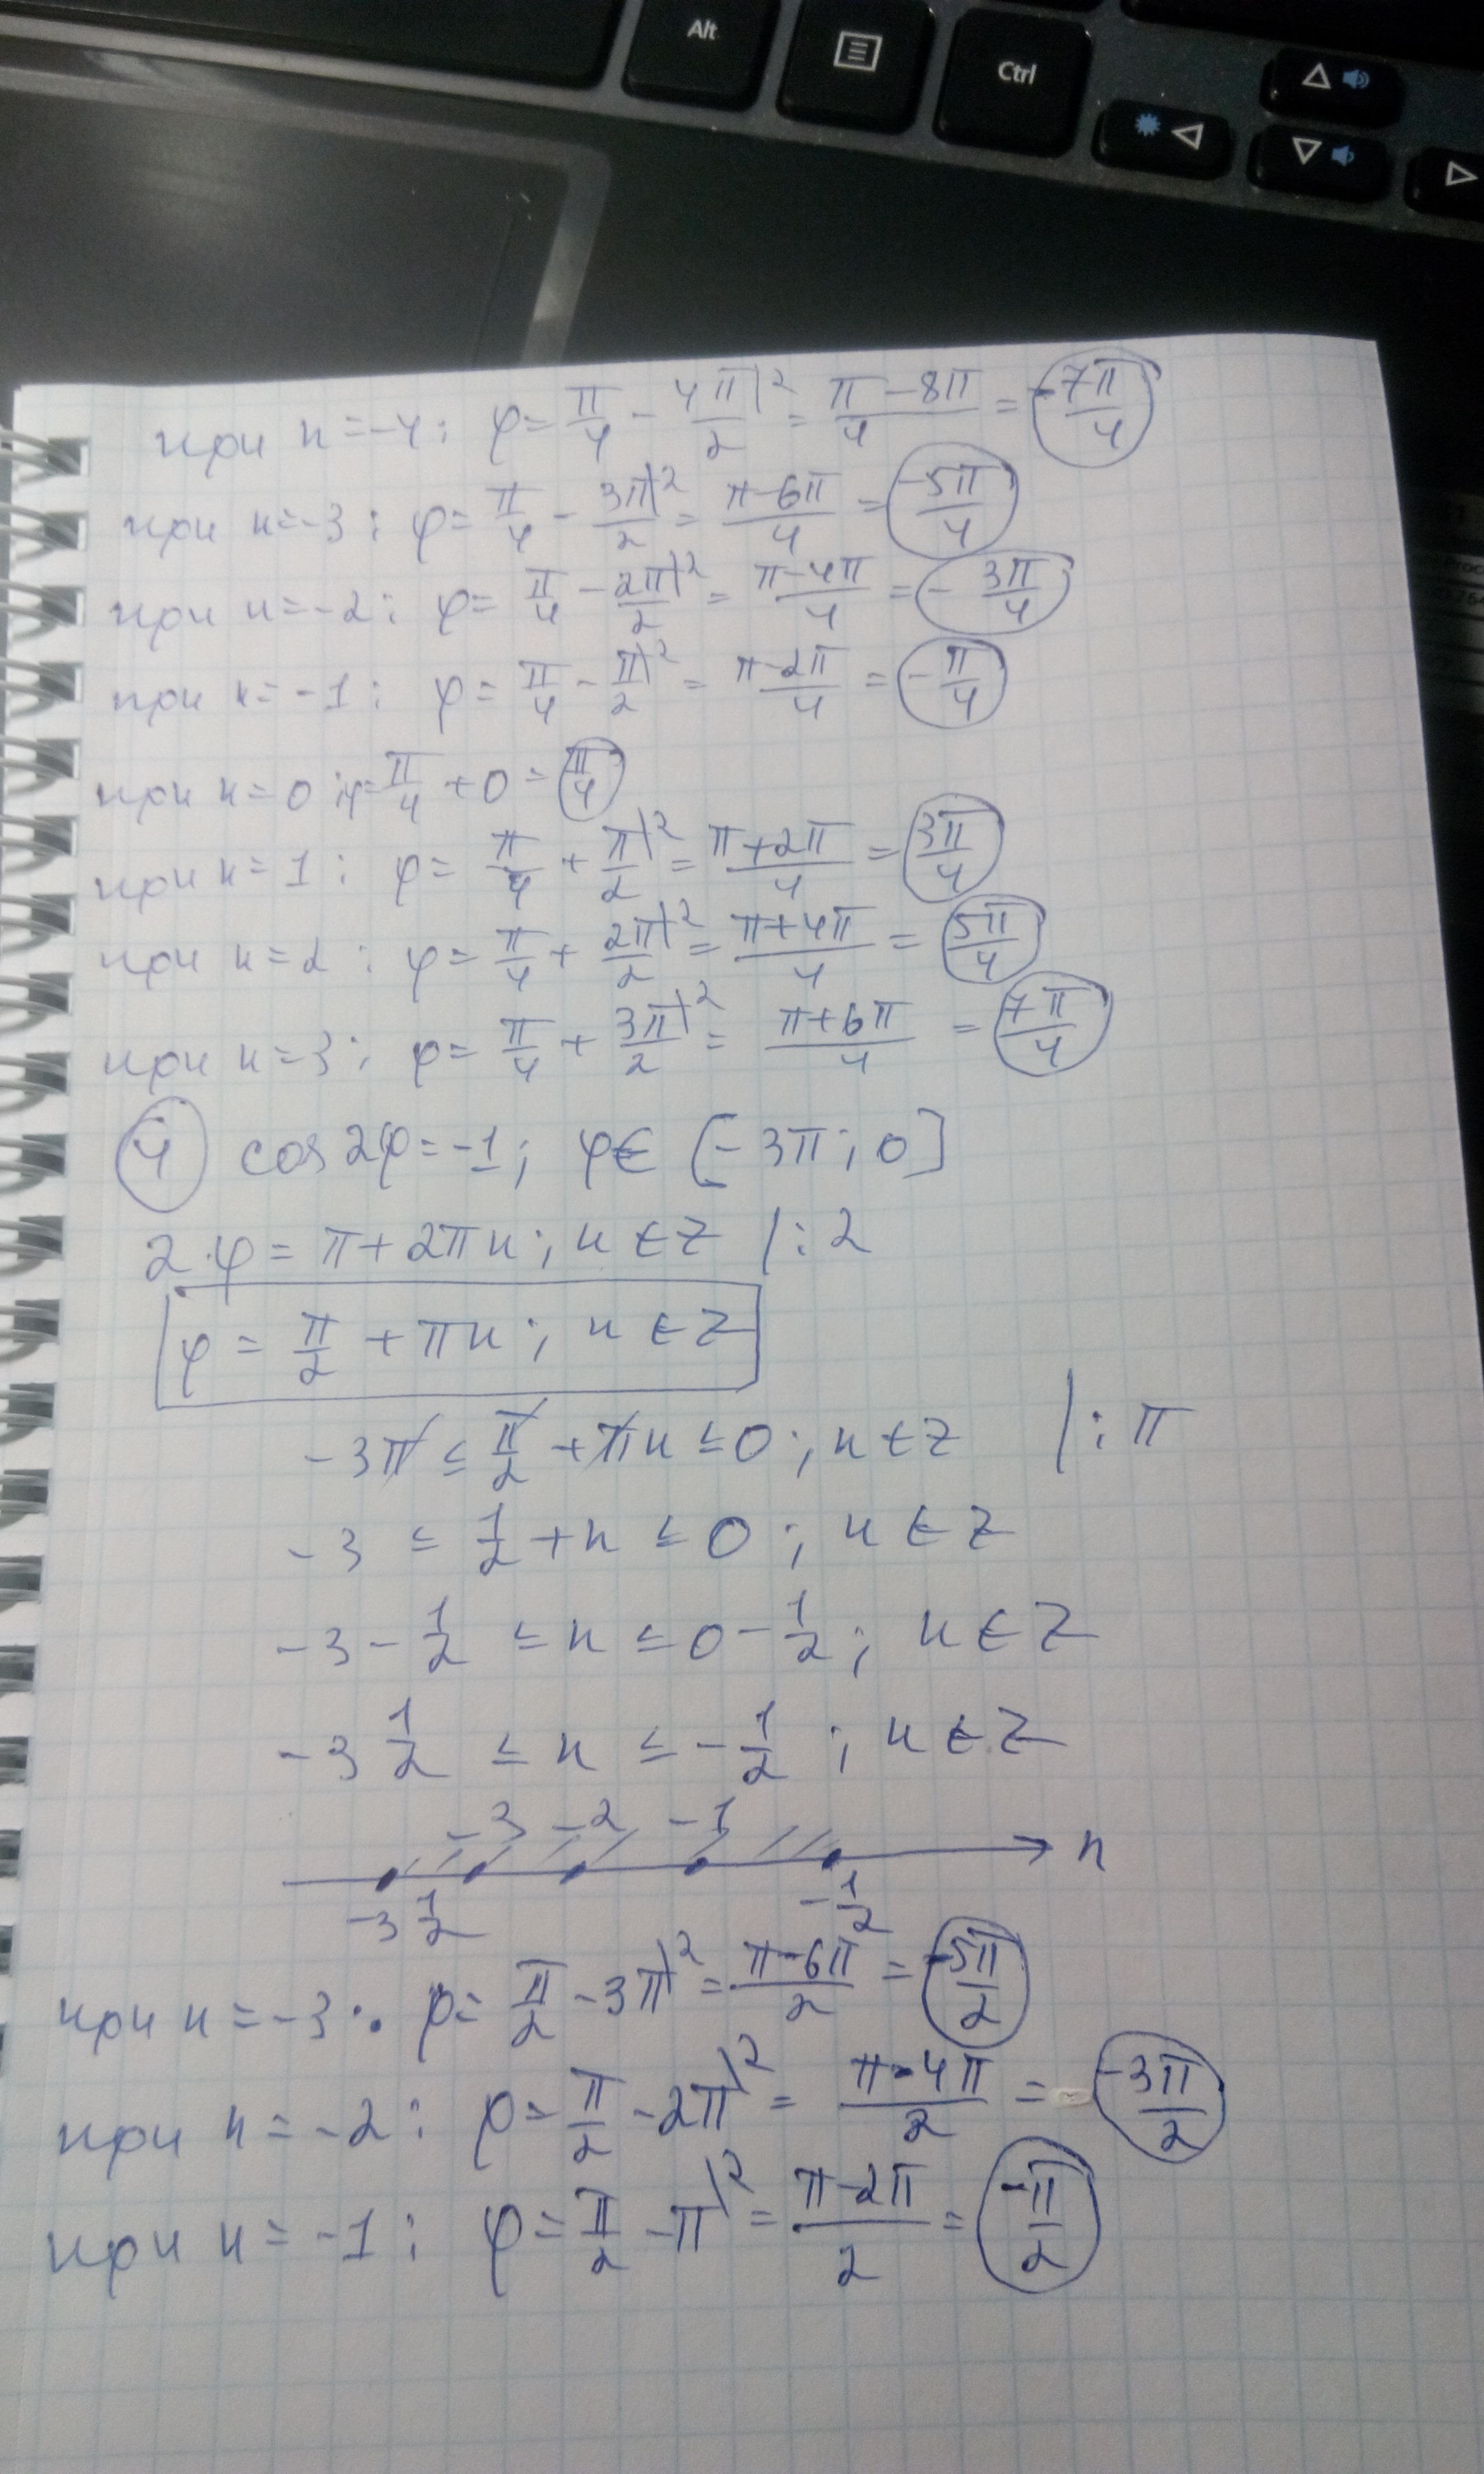 Alt
Ctrl
при n=-4: φ= π/4 - 4π/2 |2 = π-8π/4 = -7π/4
при n=-3: φ= π/4 - 3π/2 |2 = π-6π/4 = -5π/4
при n=-2: φ= π/4 - 2π/2 |2 = π-4π/4 = -3π/4
при n=-1: φ= π/4 - π/2 |2 = π-2π/4 = -π/4
при n=0: φ= π/4 + 0 = π/4
при n=1: φ= π/4 + π/2 |2 = π+2π/4 = 3π/4
при n=2: φ= π/4 + 2π/2 |2 = π+4π/4 = 5π/4
при n=3: φ= π/4 + 3π/2 |2 = π+6π/4 = 7π/4
4 cos2φ=-1; φ∈ [-3π; 0]
2·φ= π+2πn; n∈Z /:2
φ= π/2 + πn; n∈Z
-3π ≤ π/2 + πn ≤ 0; n∈Z |:π
-3 ≤ 1/2 + n ≤ 0; n∈Z
-3 - 1/2 ≤ n ≤ 0 - 1/2; n∈Z
-3 1/2 ≤ n ≤ -1/2; n∈Z
-3 -2 -1 n
-3 1/2 -1/2
при n=-3: φ= π/2 - 3π |2 = π-6π/2 = -5π/2
при n=-2: φ= π/2 - 2π |2 = π-4π/2 = -3π/2
при n=-1: φ= π/2 - π |2 = π-2π/2 = -π/2